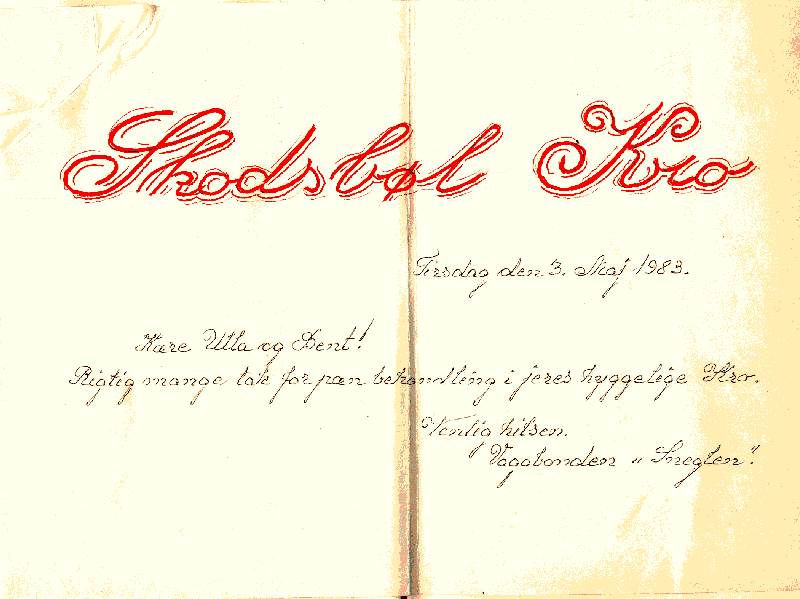 Skodsbøl Kro
Tirsdag den 3. Maj 1983.
Kære Ulla og Bent!
Rigtig mange tak for pæn behandling i jeres hyggelige Kro.
Venlig hilsen.
Vagabonden „Sneglen”.